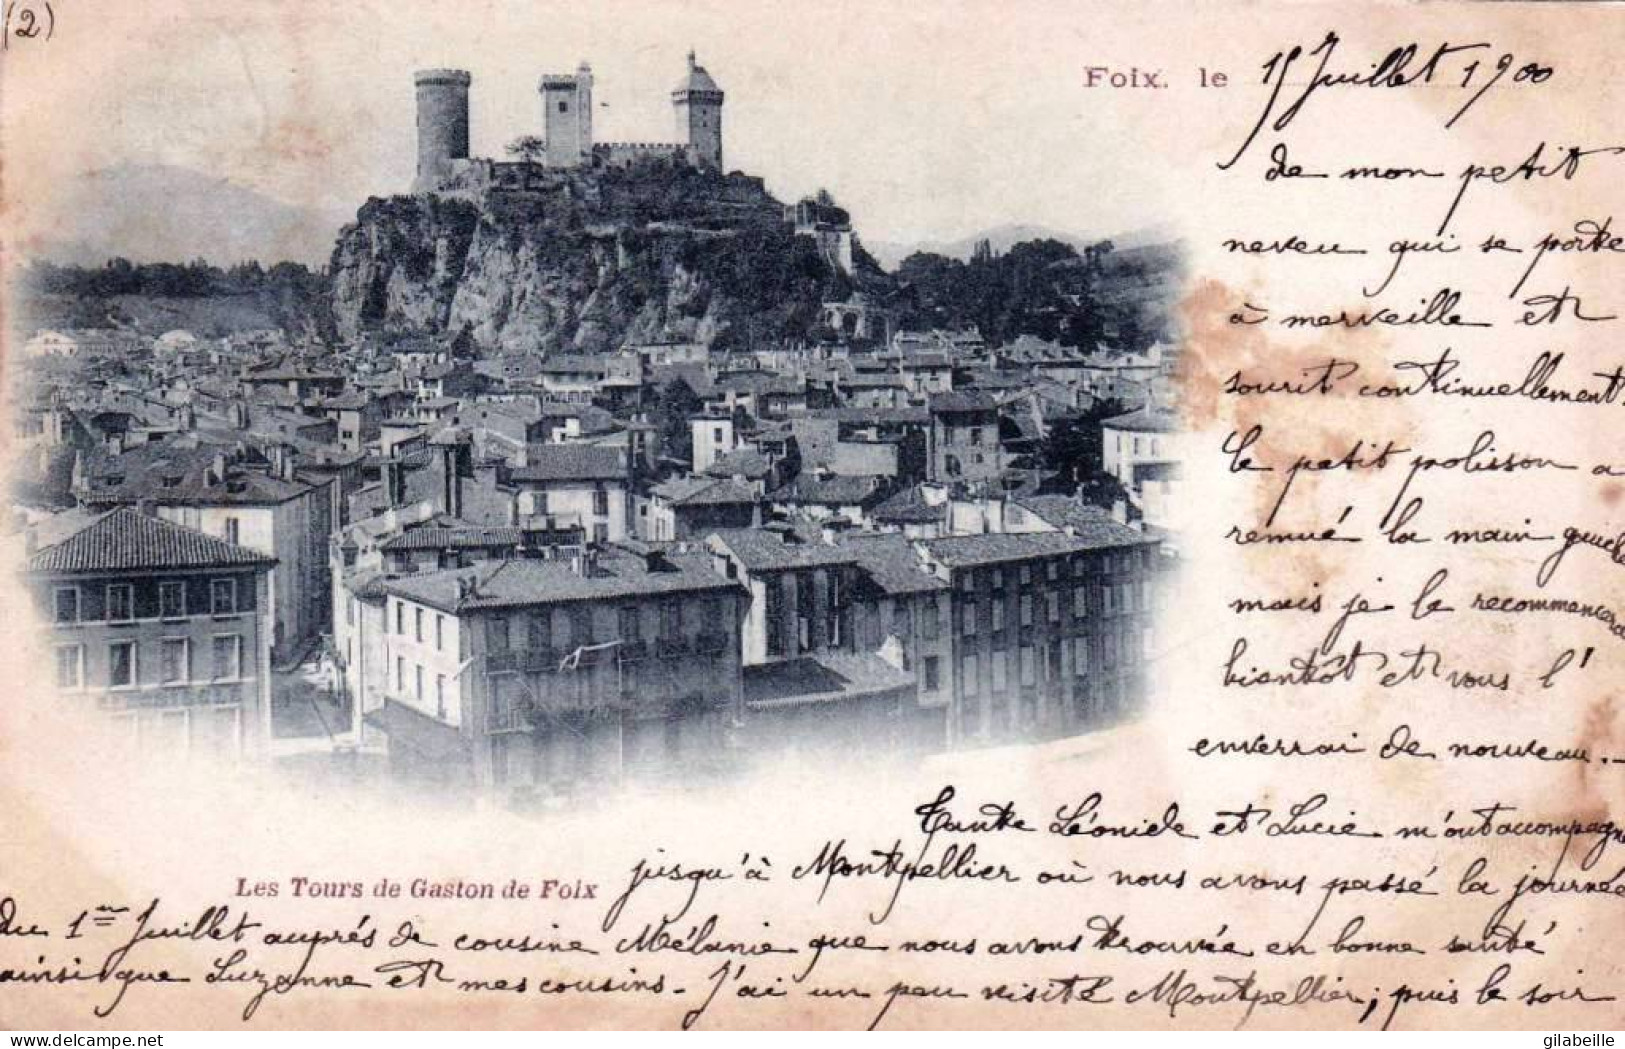 (2)
Foix. le 15 Juillet 1900
de mon petit
neveu qui se porte
à merveille et
sourit continuellement.
Ce petit polisson a
remué la main gauche
mais je le recommencerai
bientôt et vous l'
enverrai de nouveau.-
Tante Léonide et Lucie m'ont accompagné
jusqu'à Montpellier où nous avons passé la journée
Les Tours de Gaston de Foix
du 1er Juillet auprés de cousine Mélanie que nous avons trouvée en bonne santé
ainsi que Suzanne et mes cousins - J'ai un peu visité Montpellier; puis le soir
delcampe.net
gilabeille